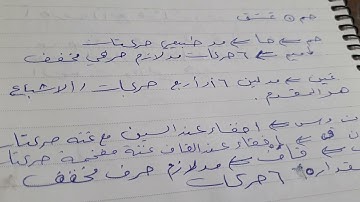 حم ۝ عسق
حم ← حا ← مد طبيعي حركتان
ميم ← ٦ حركات مد لازم حرفي مخفف
عين ← مد لين ٦ أو أربع حركات والاشباع
هو المقدم.
ن وس ← اخفاء عند السين مع غنه حركتان
ن ق ← اخفاء عند القاف غنة مفخمة حركتان
← قاف ← مد لازم حرف مخفف
مقداره ٦ حركات